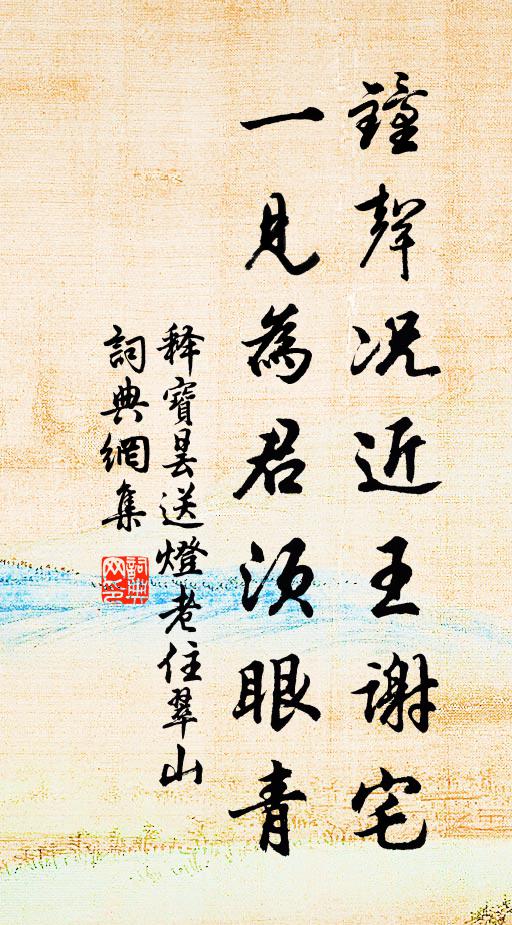 鐘聲况近王謝宅
一見為君須眼青
释寶曇送燈老住翠山
詞典網集
詞典
网印